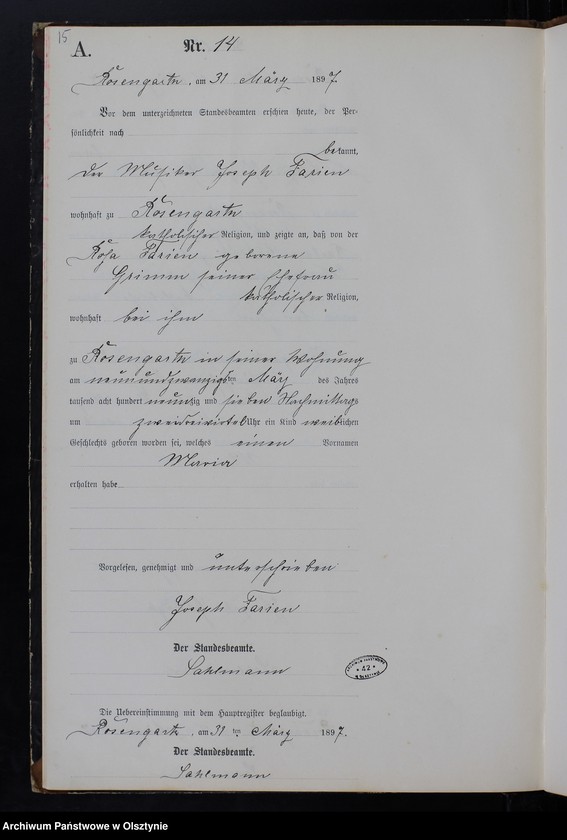 15
A.
Nr. 14
Rosengarth, am 31 März 1897.
Vor dem unterzeichneten Standesbeamten erschien heute, der Per-
sönlichkeit nach
bekannt,
der Musiker Joseph Farien
wohnhaft zu Rosengarth
katholischer Religion, und zeigte an, daß von der
Rosa Farien geborene
Grimm seiner Ehefrau
katholischer Religion,
wohnhaft bei ihm
zu Rosengarth in seiner Wohnung
am neunundzwanzigsten März des Jahres
tausend acht hundert neunzig und sieben Nachmittags
um zweidreiviertel Uhr ein Kind weiblichen
Geschlechts geboren worden sei, welches einen Vornamen
Maria
erhalten habe
Vorgelesen, genehmigt und unterschrieben
Joseph Farien
Der Standesbeamte.
Sahlmann
Die Uebereinstimmung mit dem Hauptregister beglaubigt.
Rosengarth, am 31 ten März 1897.
Der Standesbeamte.
Sahlmann
42
Archiwum Państwowe w Olsztynie